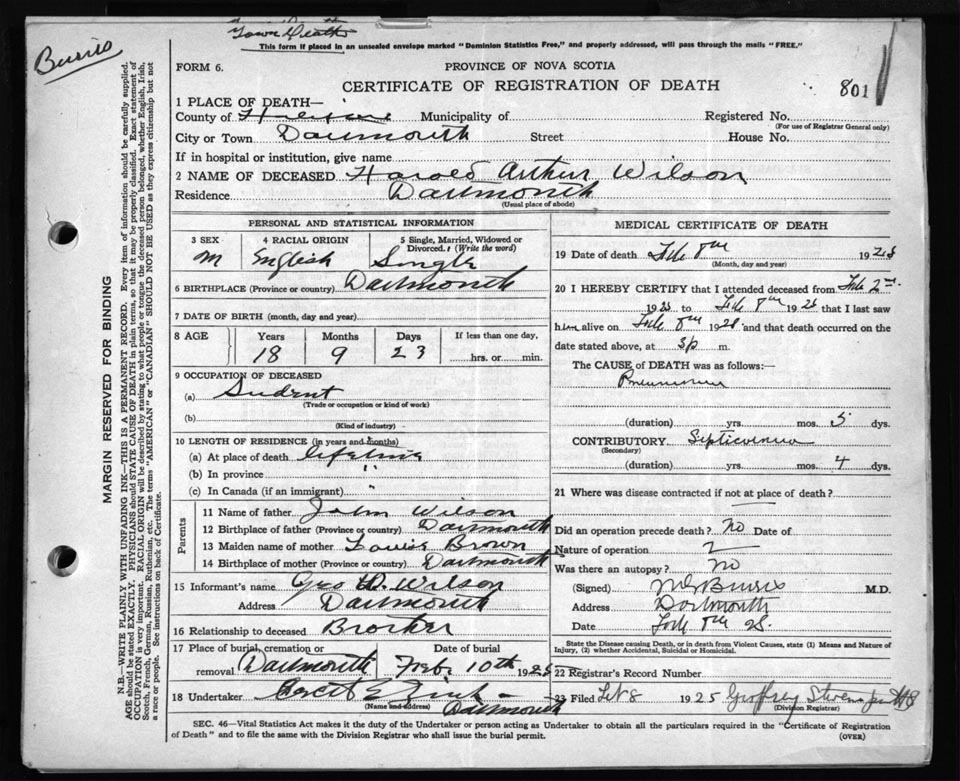 Town Death
Burris
This form if placed in an unsealed envelope marked "Dominion Statistics Free," and properly addressed, will pass through the mails "FREE."
FORM 6.
PROVINCE OF NOVA SCOTIA
CERTIFICATE OF REGISTRATION OF DEATH
801
1 PLACE OF DEATH—
County of Halifax Municipality of Registered No.
(For use of Registrar General only)
City or Town Dartmouth Street House No.
If in hospital or institution, give name
2 NAME OF DECEASED Harold Arthur Wilson
Residence Dartmouth
(Usual place of abode)
MARGIN RESERVED FOR BINDING
N.B.—WRITE PLAINLY WITH UNFADING INK—THIS IS A PERMANENT RECORD. Every item of information should be carefully supplied.
AGE should be stated EXACTLY. PHYSICIANS should STATE CAUSE OF DEATH in plain terms, so that it may be properly classified. Exact statement of
OCCUPATION is very important. RACIAL ORIGIN will be described by stating to what people or tongue the deceased person belonged, whether English, Irish,
Scotch, French, German, Russian, Ruthenian, etc. The terms "AMERICAN" or "CANADIAN" SHOULD NOT BE USED as they express citizenship but not
a race or people. See instructions on back of Certificate.
PERSONAL AND STATISTICAL INFORMATION
3 SEX
M
4 RACIAL ORIGIN
English
5 Single, Married, Widowed or
Divorced. (Write the word)
Single
6 BIRTHPLACE (Province or country) Dartmouth
7 DATE OF BIRTH (month, day and year)
8 AGE Years Months Days If less than one day,
18 9 23 hrs. or min.
9 OCCUPATION OF DECEASED
(a) Student
(Trade or occupation or kind of work)
(b)
(Kind of industry)
10 LENGTH OF RESIDENCE (in years and months)
(a) At place of death lifetime
(b) In province "
(c) In Canada (if an immigrant) "
Parents
11 Name of father John Wilson
12 Birthplace of father (Province or country) Dartmouth
13 Maiden name of mother Brown
14 Birthplace of mother (Province or country) Dartmouth
15 Informant's name Geo Wilson
Address Dartmouth
16 Relationship to deceased Brother
17 Place of burial, cremation or Date of burial
removal Dartmouth Feb. 10th 1925
18 Undertaker
(Name and address) Dartmouth
MEDICAL CERTIFICATE OF DEATH
19 Date of death Feb 8th 1925
(Month, day and year)
20 I HEREBY CERTIFY that I attended deceased from Feb 2nd
1925 to Feb 8th 1925 that I last saw
him alive on Feb 8th 1925 and that death occurred on
date stated above, at m.
The CAUSE of DEATH was as follows:—
Pneumonia
(duration) yrs. mos. 5 dys.
CONTRIBUTORY Septicemia
(Secondary)
(duration) yrs. mos. 4 dys.
21 Where was disease contracted if not at place of death?
Did an operation precede death? No Date of
Nature of operation
Was there an autopsy? No
(Signed) Burris M.D.
Address Dartmouth
Date Feb 8th 25.
State the Disease causing Death, or in death from Violent Causes, state (1) Means and Nature of
Injury, (2) whether Accidental, Suicidal or Homicidal.
22 Registrar's Record Number
23 Filed Feb 8 1925 Geoffrey Stevens
(Division Registrar)
SEC. 46—Vital Statistics Act makes it the duty of the Undertaker or person acting as Undertaker to obtain all the particulars required in the "Certificate of Registration
of Death" and to file the same with the Division Registrar who shall issue the burial permit.
(OVER)